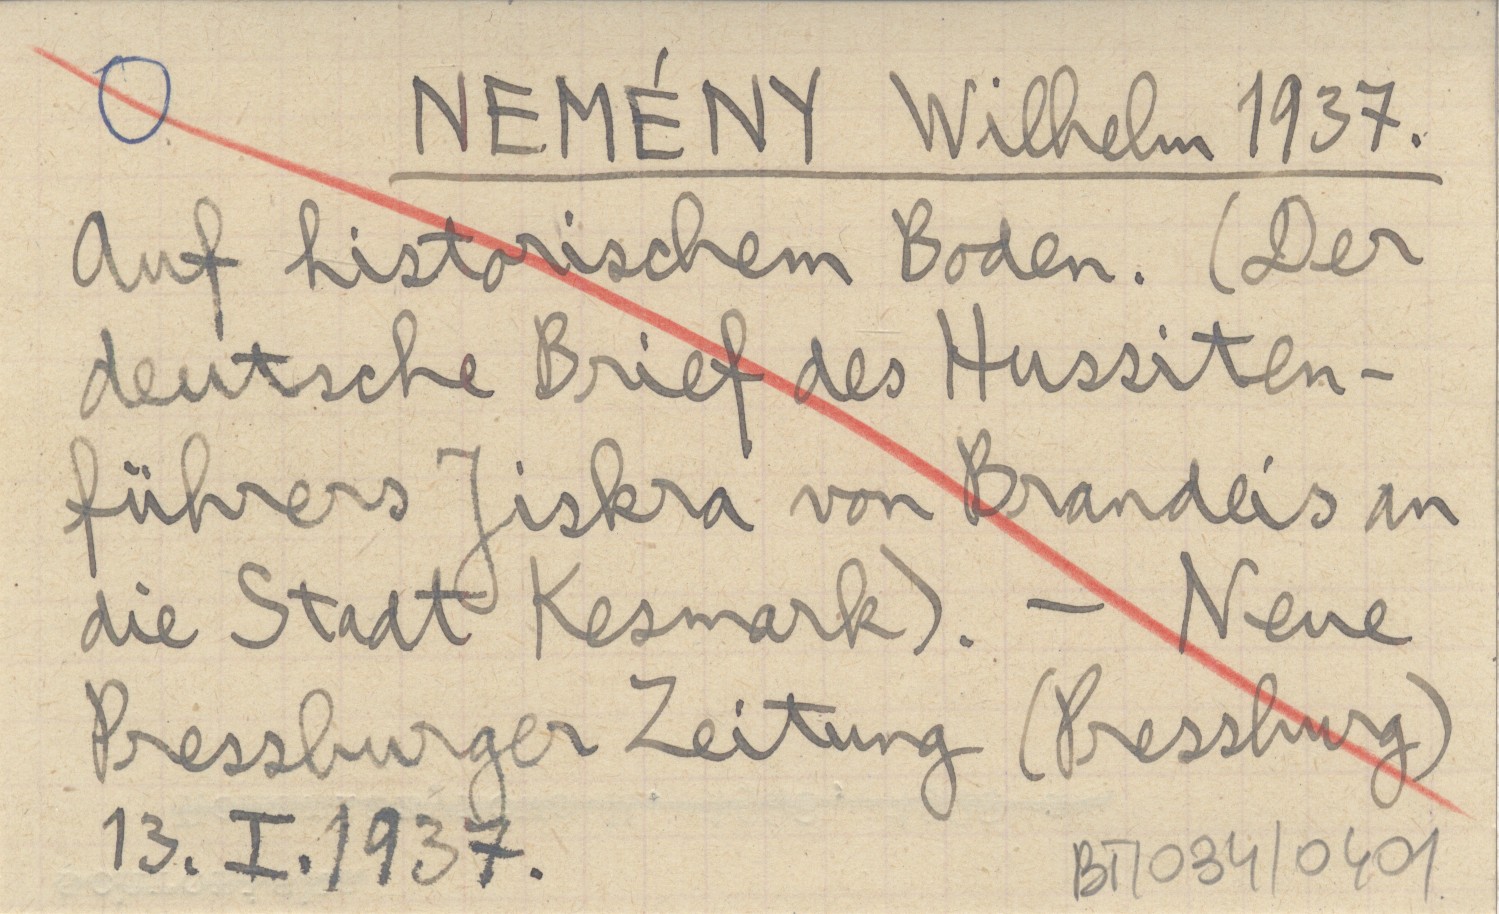 NEMÉNY Wilhelm 1937.
Auf historischem Boden. (Der
deutsche Brief des Hussiten-
führers Jiskra von Brandeis an
die Stadt Kesmark). - Neue
Pressburger Zeitung (Pressburg)
13. I. 1937.
BT/034/0401